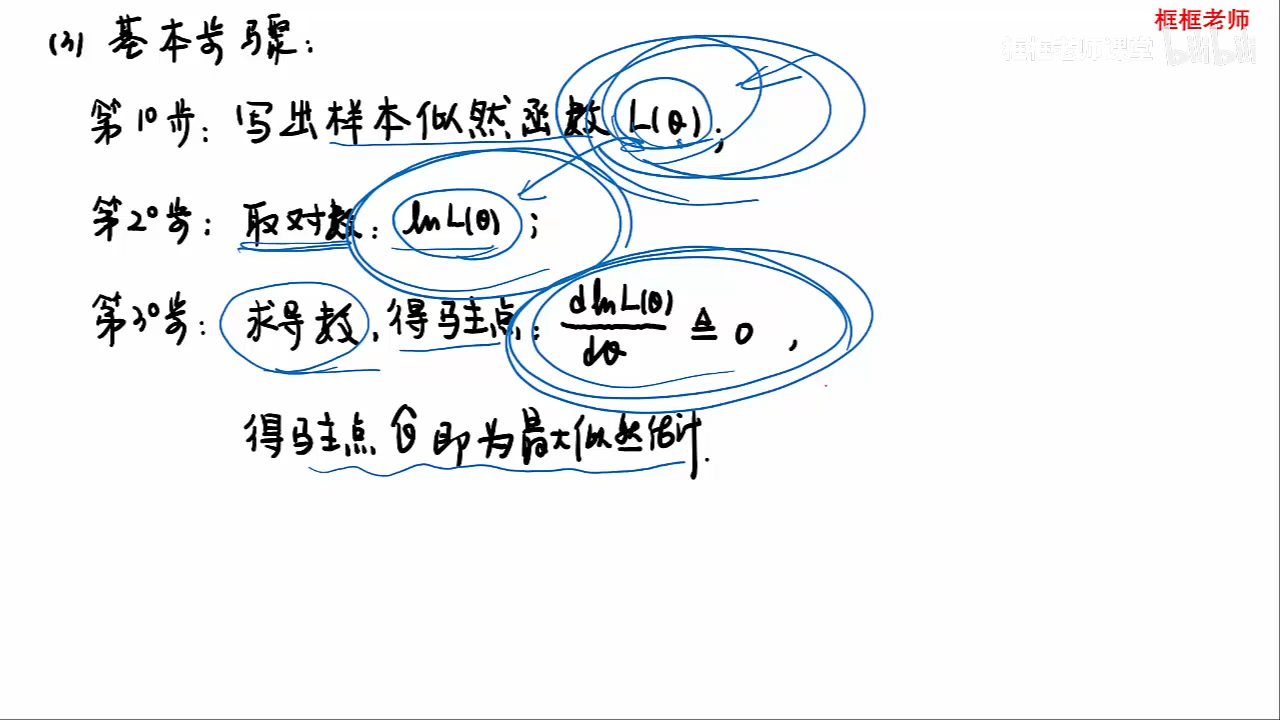 框框老师
框框老师课堂 bilibili
(3) 基本步骤：
第1°步：写出样本似然函数 L(θ)；
第2°步：取对数：lnL(θ)；
第3°步：求导数，得驻点：dlnL(θ)/dθ ≜ 0，
得驻点 θ̂ 即为最大似然估计.